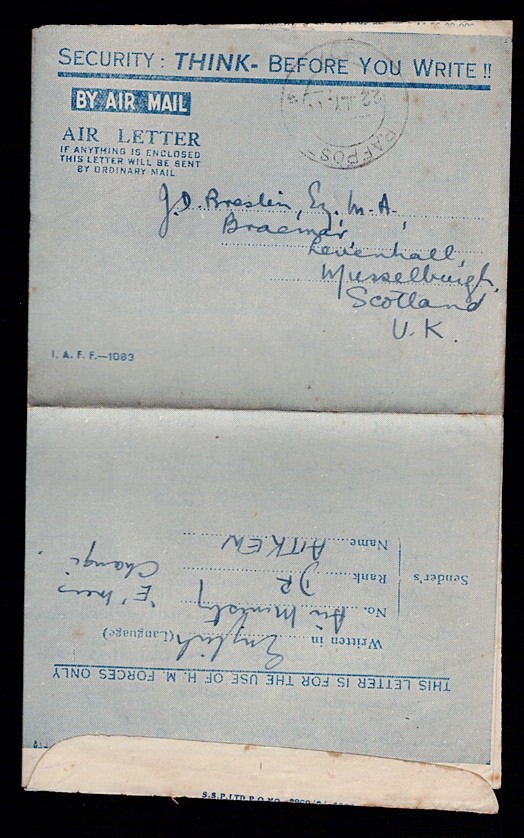 SECURITY: THINK- BEFORE YOU WRITE !!
BY AIR MAIL
AIR LETTER
IF ANYTHING IS ENCLOSED
THIS LETTER WILL BE SENT
BY ORDINARY MAIL
22 JU
RAFPOST
J.D. Breslin, Esq., M.A.,
Braemar,
Levenhall,
Musselburgh,
Scotland
U.K.
I. A. F. F.—1083
THIS LETTER IS FOR THE USE OF H. M. FORCES ONLY
Written in English (Language)
No. Air Ministry
'E' Mess
Sender's
Rank DR
Changi
Name AITKEN
S.S.P. LTD P.O NO.